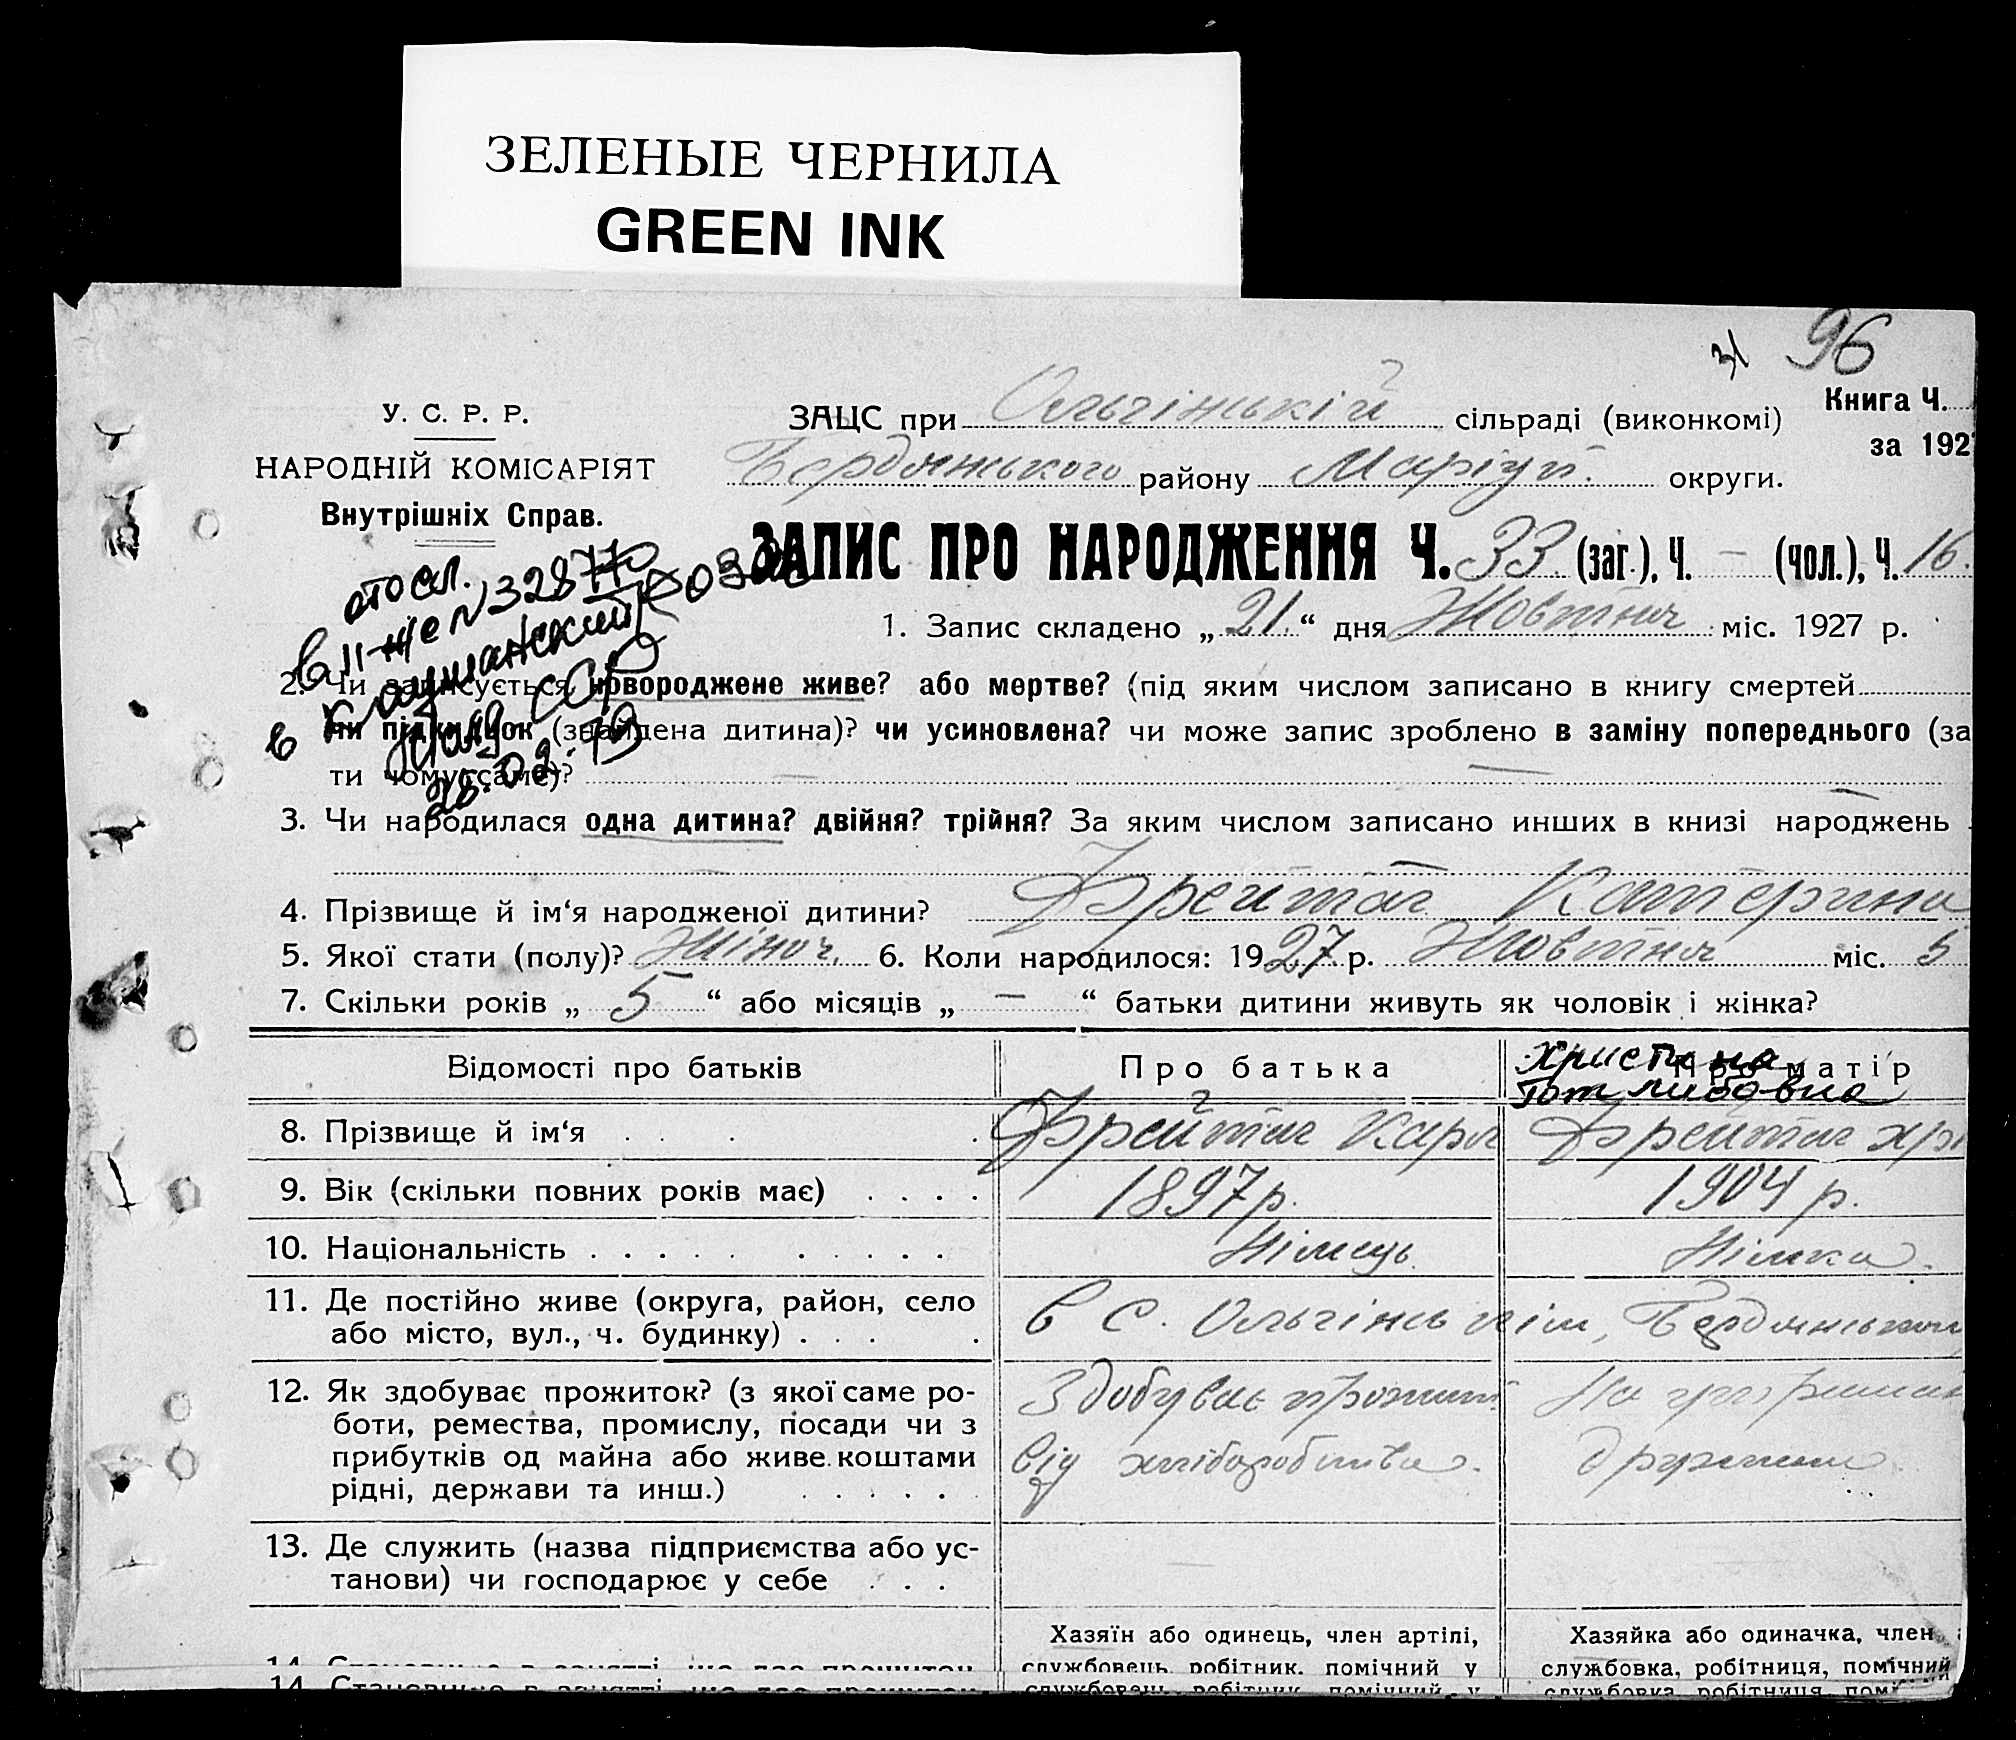 ЗЕЛЕНЫЕ ЧЕРНИЛА
GREEN INK
зі 96
У. С. Р. Р.
НАРОДНІЙ КОМІСАРІЯТ
Внутрішніх Справ.
ЗАЦС при Ольгінській сільраді (виконкомі)
Книга Ч.
за 192
району Маріуп. округи.
ЗАПИС ПРО НАРОДЖЕННЯ Ч. 33 (заг.), Ч. — (чол.), Ч. 16.
отосл.
1. Запис складено „21.“ дня Жовтня міс. 1927 р.
2. Чи записується новороджене живе? або мертве? (під яким числом записано в книгу смертей
чи підкидьок (знайдена дитина)? чи усиновлена? чи може запис зроблено в заміну попереднього (за
ти чому саме)? —
28.02.79
3. Чи народилася одна дитина? двійня? трійня? За яким числом записано инших в книзі народжень
4. Прізвище й ім‘я народженої дитини? Фрейтаг Катерина
5. Якої стати (полу)? Жіноч. 6. Коли народилося: 1927 р. Жовтня міс. 5
7. Скільки років „ 5 “ або місяців „ — “ батьки дитини живуть як чоловік і жінка?
Відомості про батьків
Про батька
Про матір
Християна
Готлибовна
8. Прізвище й ім‘я . . . . Фрейтаг Карл Фрейтаг Хри
9. Вік (скільки повних років має) . . . . 1897 р. 1904 р.
10. Національність . . . . . . . . . . Німець. Німка.
11. Де постійно живе (округа, район, село
або місто, вул., ч. будинку) . . . .
в с. Ольгінськім,
12. Як здобуває прожиток? (з якої саме ро-
боти, ремества, промислу, посади чи з
прибутків од майна або живе коштами
рідні, держави та инш.) . . . . . .
Здобуває прожит.
від хліборобства.
На утриман
дружини
13. Де служить (назва підприємства або ус-
танови) чи господарює у себе . . .
Хазяїн або одинець, член артілі,
службовець, робітник, помічний у
Хазяйка або одиначка, член
службовка, робітниця, помічний
14. Становище в занятті, що дає прожиток